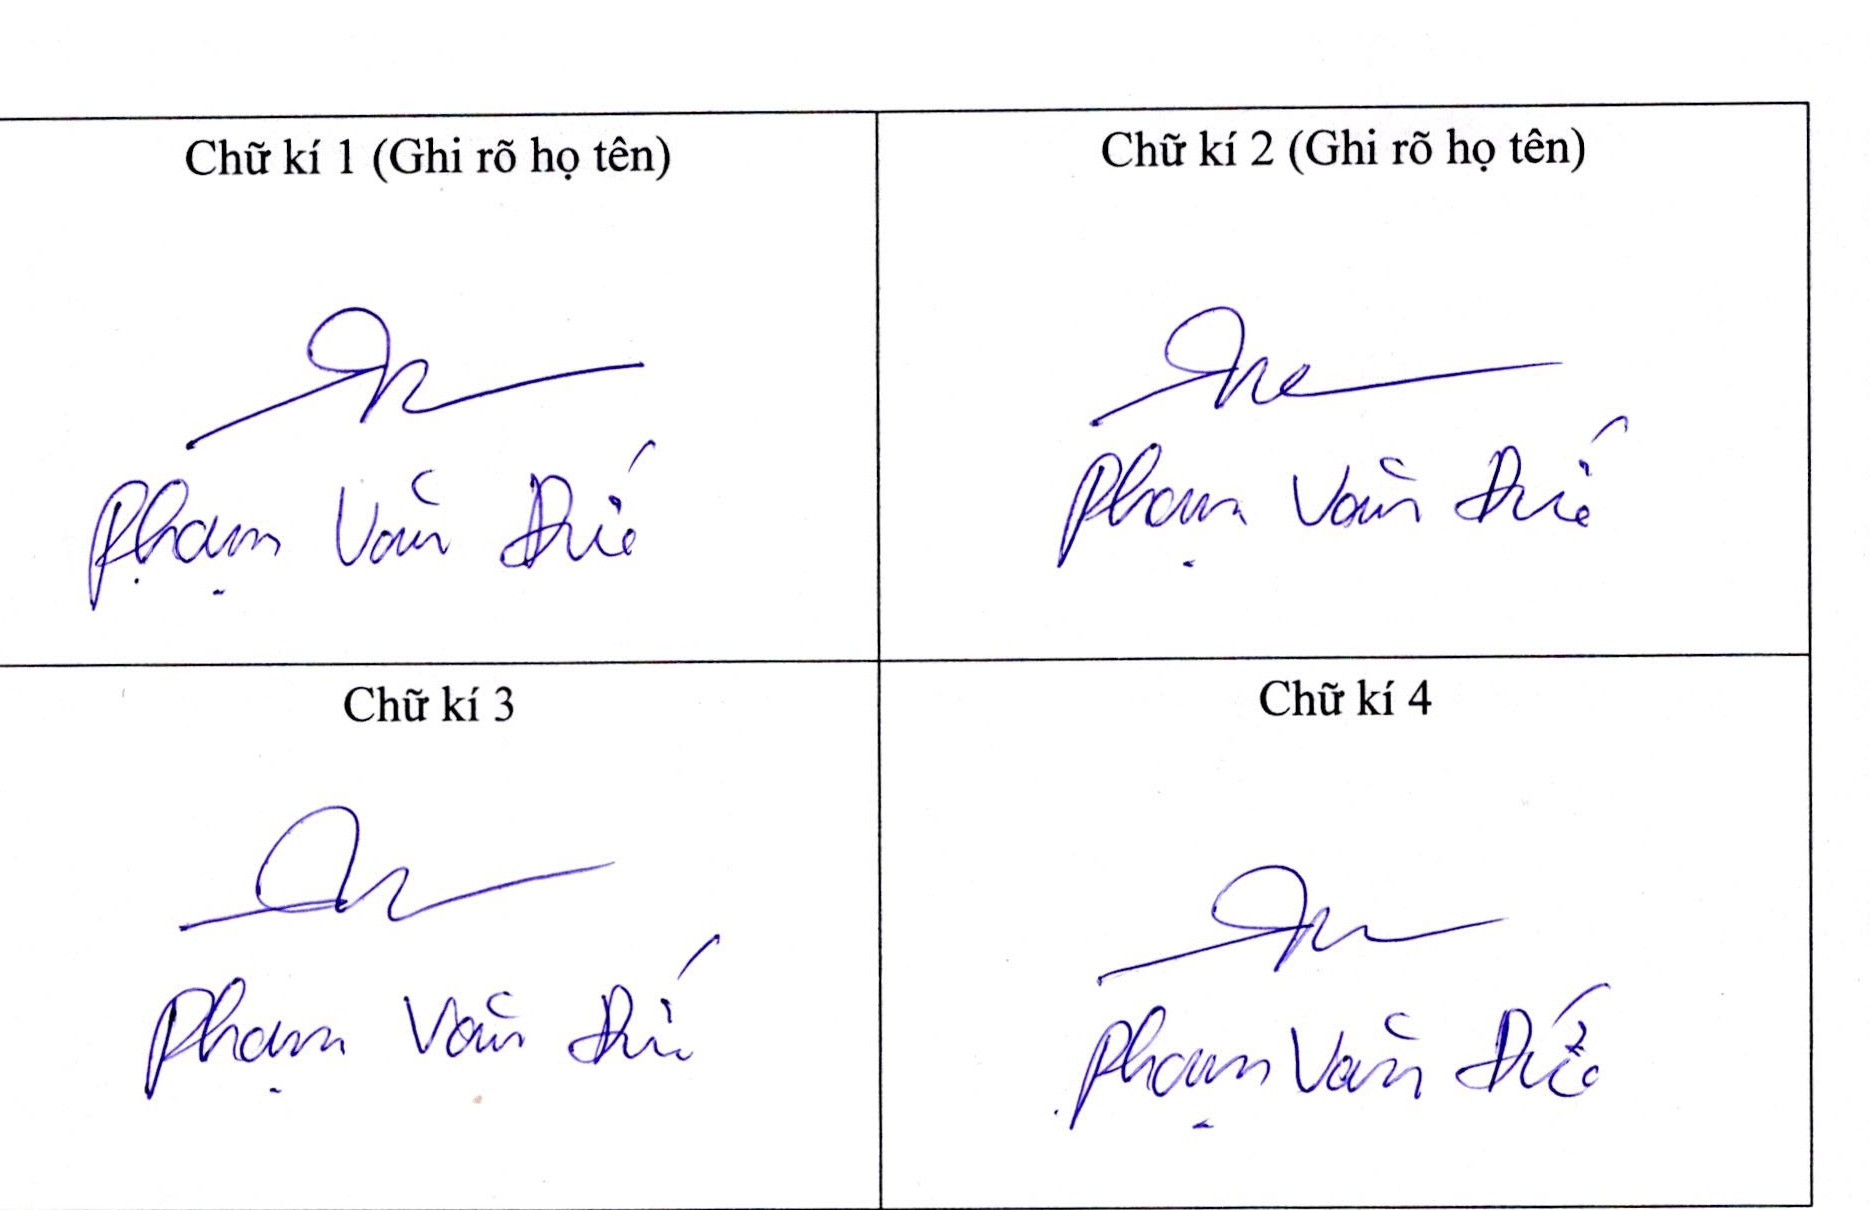 Chữ kí 1 (Ghi rõ họ tên)
Chữ kí 2 (Ghi rõ họ tên)
Phạm Văn Đức
Phạm Văn Đức
Chữ kí 3
Chữ kí 4
Phạm Văn Đức
Phạm Văn Đức